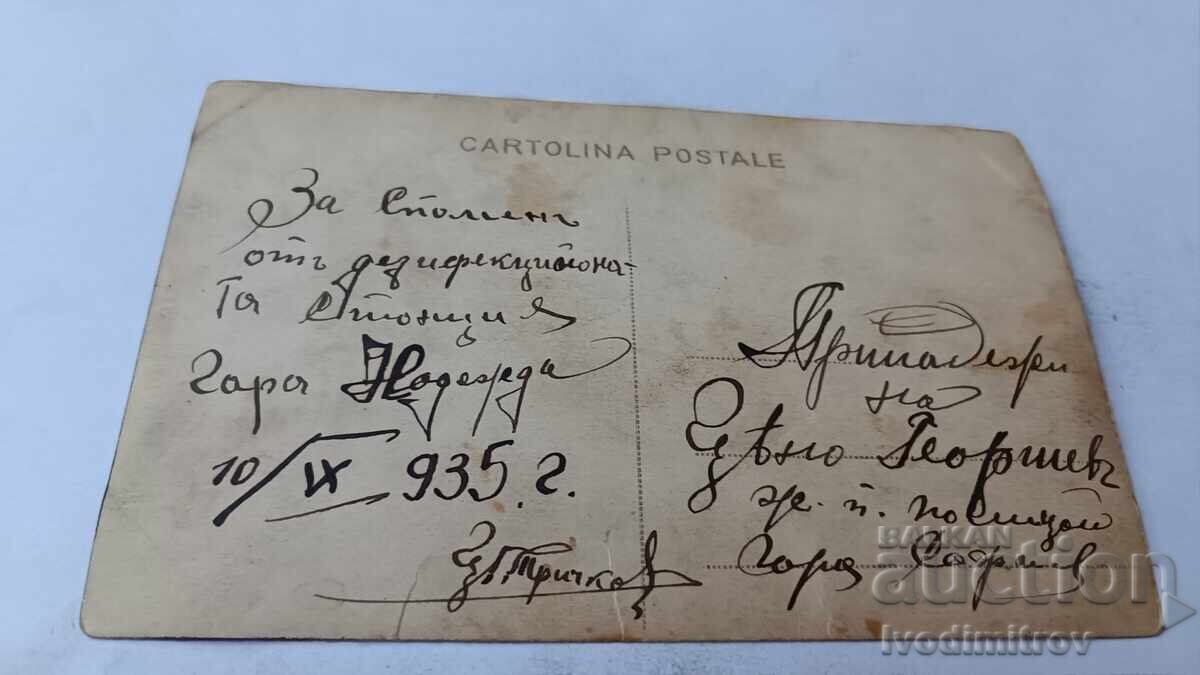 CARTOLINA POSTALE
За Споменъ
отъ дезифекционна-
та Станция
Гара Надежда
10/IX 935 г.
Ц. Г. Тричков
Принадежи
на
Цѣно Георгиевъ
ж. п. полицай
Гара София
BALKAN
auction
Ivodimitrov